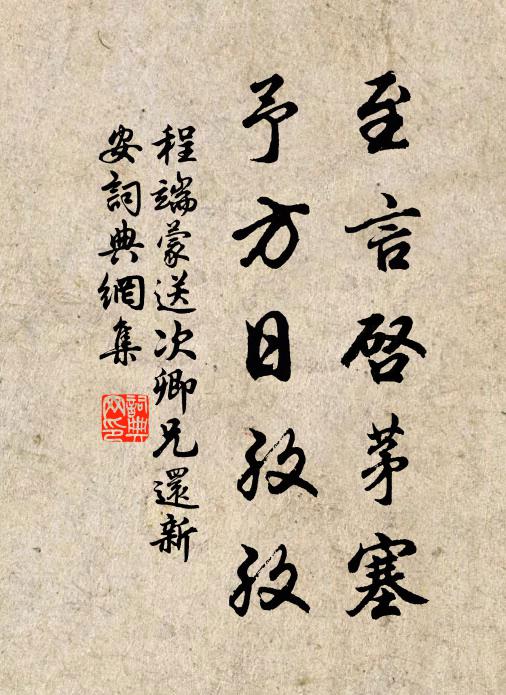 至言啓茅塞
予方日孜孜
程端蒙送次卿兄還新
安詞典網集
詞典网印